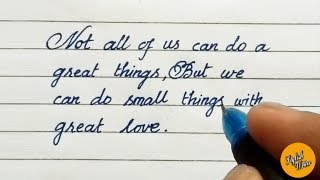 Not all of us can do a
great things, But we
can do small things with
great love.